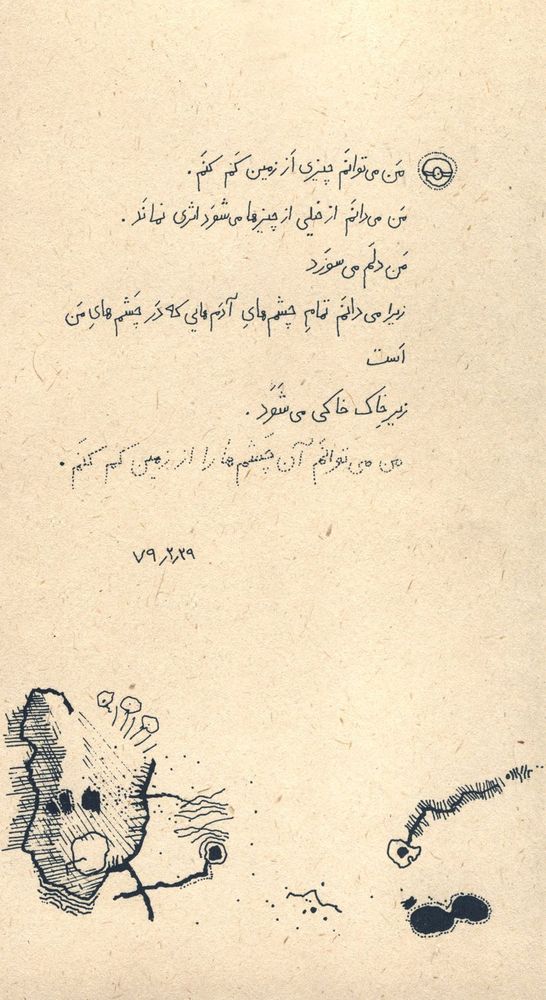 مَن می‌توانَم چیزی اَز زمین کَم کنَم.
مَن می‌دانَم از خیلی از چیزها می‌شوَد اثری نمانَد.
مَن دلَم می‌سوزَد
زیرا می‌دانَم تمامِ چشم‌هایِ آدَم‌هایی که دَر چَشم‌هایِ مَن
اَست
زیرِ خاک خاکی می‌شَوَد.
من می‌توانَم آن چَشم‌ها را از زمین کم کنَم.
۷۹٫۲٫۲۹